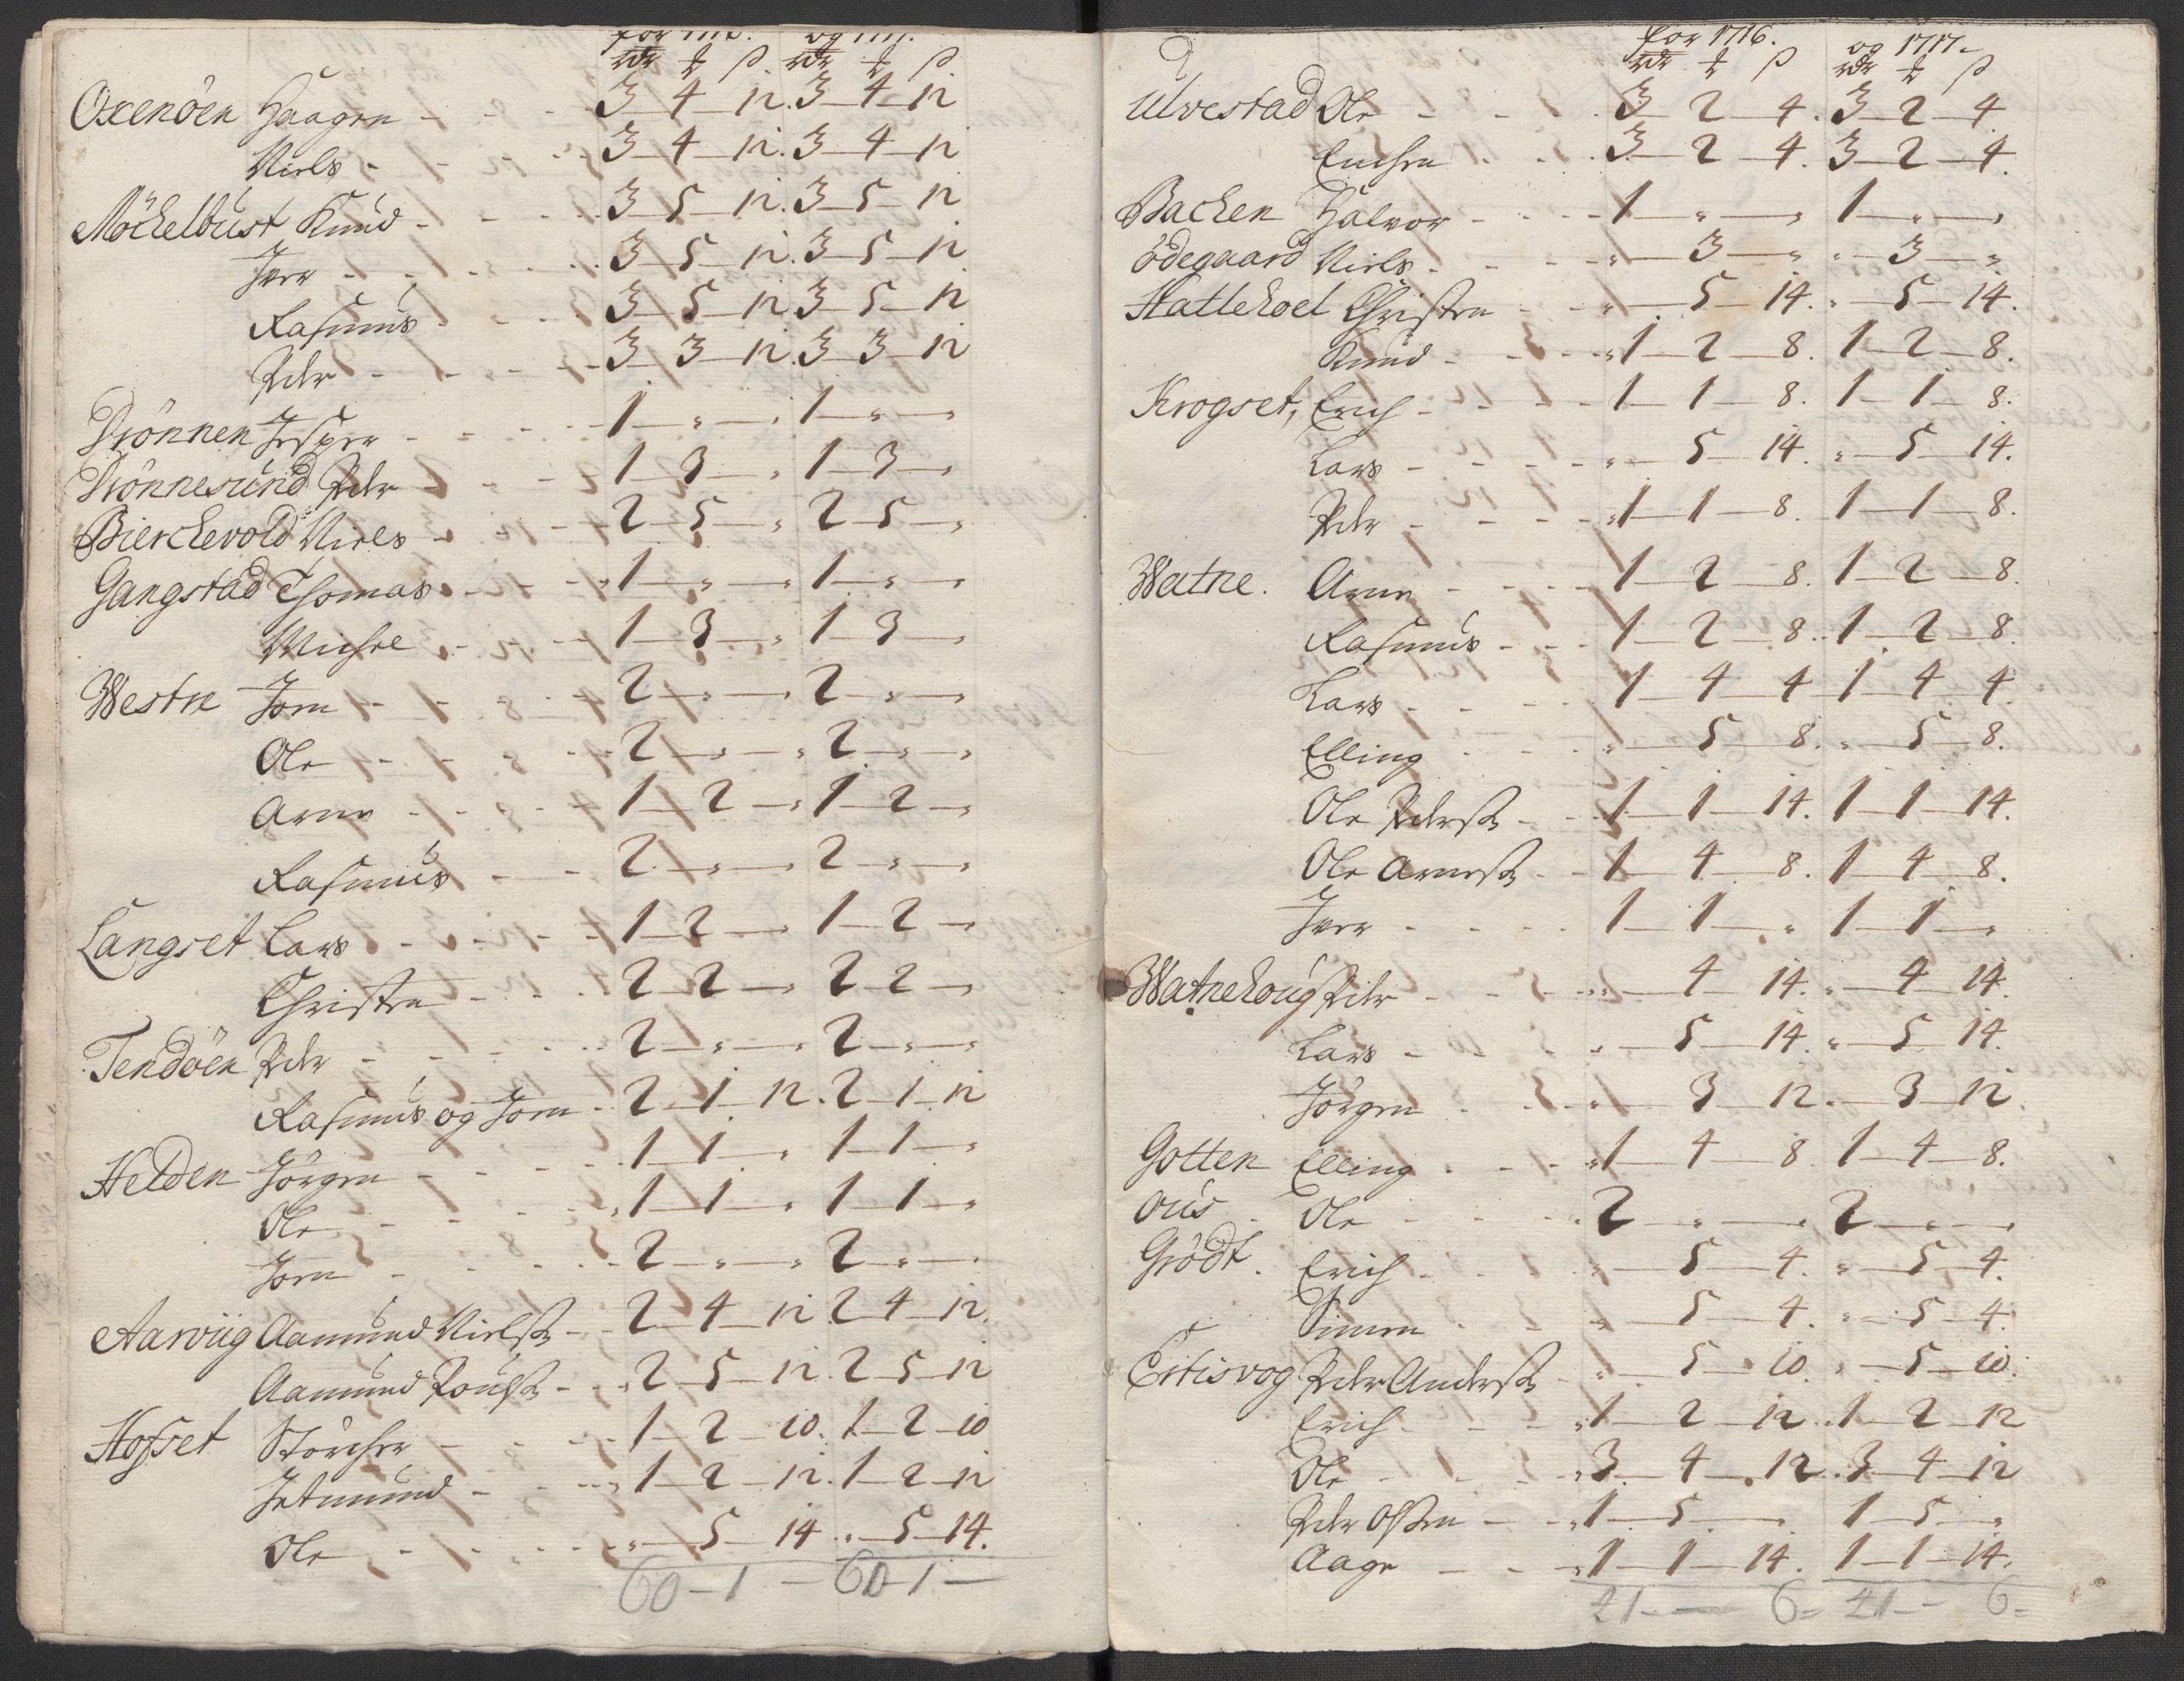 for 171 . og 171 .
rdr ₰ ß. rdr ₰ ß
Oxenöen Haagen - - - 3 4 12. 3 4 12
Niels - 3 4 12. 3 4 12
Möckelbust Knud - - - 3 5 12. 3 5 12
Iver - - - 3 5 12. 3 5 12
Rasmus 3 5 12 3 5 12
Peder - - - 3 3 12. 3 3 12
Drönnen Jesper - - - 1 " " 1 " "
Drönnesund Peder - - 1 3 " 1 3 "
Bierckevold Niels - - 2 5 " 2 5 "
Gangstad Thomas - - 1 " " 1 " "
Michel - - 1 3 " 1 3 "
Westre Jon - - 2 " " 2 " "
Ole - - 2 " " 2 " "
Arne - - 1 2 " 1 2 "
Rasmus - - 2 " " 2 " "
Langset Lars - - 1 2 " 1 2 "
Christen - - 2 2 " 2 2 "
Tendöen Peder - - 2 " " 2 " "
Rasmus og Jon - 2 1 12. 2 1 12
Helden Jörgen - - 1 1 " 1 1 "
Ole - - 1 1 " 1 1 "
Jon - - 2 " " 2 " "
Aarviig Aamund Nielss. - 2 4 12 2 4 12.
Aamund Poulss. - 2 5 12. 2 5 12
Hofset Störcher - - 1 2 10. 1 2 10
Jetmund - - 1 2 12. 1 2 12
Ole - - " 5 14 " 5 14.
60 - 1 - 60 - 1 -
for 1716. og 1717.
rdr ₰ ß rdr ₰ ß
Ulvestad Ole - - 3 2 4. 3 2 4
Enchen - - 3 2 4. 3 2 4.
Bachen Halvor - - 1 " " 1 " "
Ödegaard Niels - - " 3 " " 3 "
Hattlehoel Christen - - " 5 14. " 5 14.
Knud - - 1 2 8. 1 2 8.
Krogset, Erich - - 1 1 8. 1 1 8.
Lars - - " 5 14. " 5 14.
Peder - - 1 1 8. 1 1 8.
Watne. Arne - - 1 2 8. 1 2 8.
Rasmus - - 1 2 8. 1 2 8.
Lars - - 1 4 4 1 4 4.
Elling - - " 5 8. " 5 8.
Ole Pederss. - 1 1 14. 1 1 14.
Ole Arness. - - 1 4 8. 1 4 8.
Iver - - 1 1 " 1 1 "
Watnehoug Peder - - " 4 14. " 4 14.
Lars - - " 5 14. " 5 14.
Jörgen - - " 3 12. " 3 12.
Gotten Elling - - 1 4 8 1 4 8.
Ous Ole - - 2 " " 2 " "
Grödt. Erich - - " 5 4. " 5 4.
Simen - - " 5 4. " 5 4.
Eitisvog Peder Anderss. " 5 10. " 5 10.
Erich - - 1 2 12. 1 2 12
Ole - - 3 4 12. 3 4 12
Peder Olsen - - 1 5 " 1 5 "
Aage - - 1 1 14. 1 1 14.
21 - - 6 = 21 - - 6 =